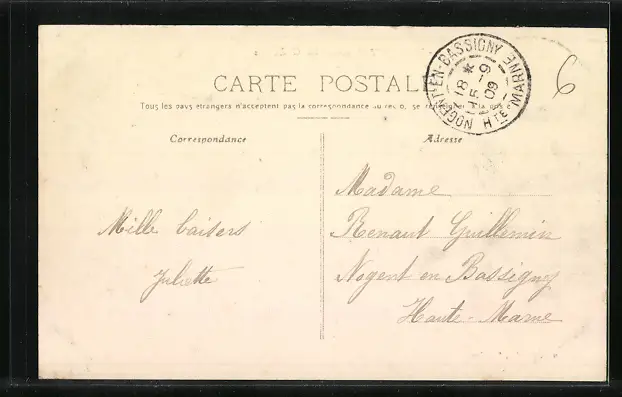 CARTE POSTALE
Tous les pays étrangers n'acceptent pas la correspondance au recto, se renseigner à la poste
NOGENT-EN-BASSIGNY HTE-MARNE
18 *
-9
09
6
Correspondance
Adresse
Mille baisers
Juliette
Madame
Renaut Guillemin
Nogent en Bassigny
Haute-Marne